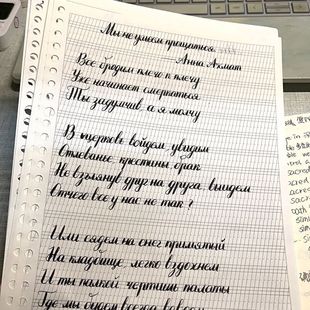 Мы не умеем прощаться
Анна Ахмат
Все бродим плечо к плечу
Уже начинает смеркаться
Ты задумчив, а я молчу
В церковь войдем, увидим
Отпевание, крестины, брак
Не взглянув друг на друга, выйдем
Отчего все у нас не так?
Или сядем на снег примятый
На кладбище, легко вздохнем
И ты палкой чертишь палаты
Где мы будем всегда вдвоем